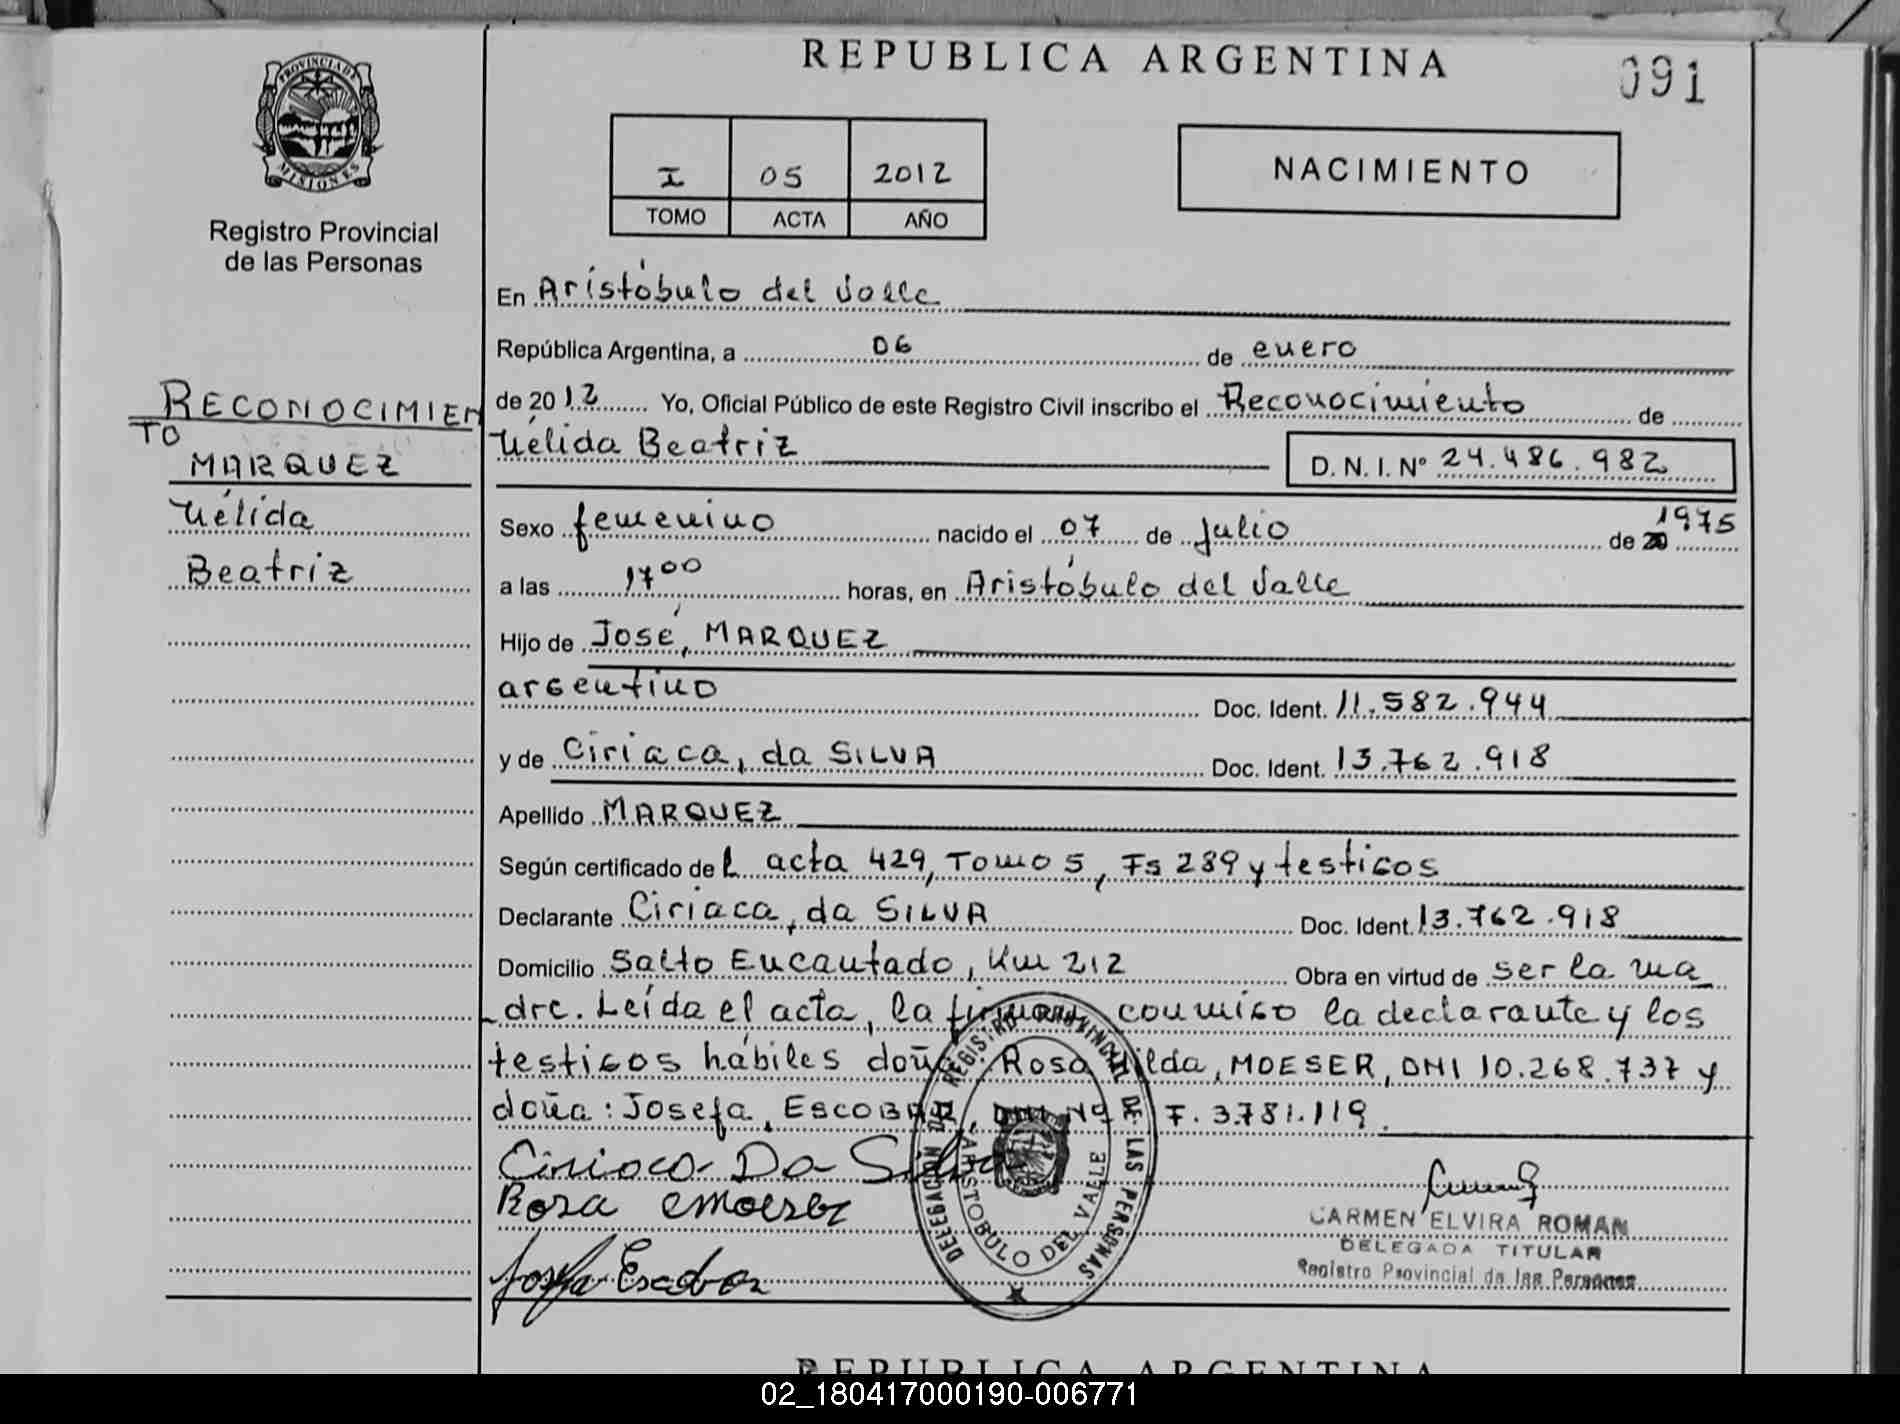 REPUBLICA ARGENTINA
091
PROVINCIA DE
MISIONES
Registro Provincial
de las Personas
I 05 2012
TOMO ACTA AÑO
NACIMIENTO
RECONOCIMIEN
TO
MARQUEZ
Nélida
Beatriz
En Aristóbulo del Valle
República Argentina, a 06 de enero
de 2012 Yo, Oficial Público de este Registro Civil inscribo el Reconocimiento de
Nélida Beatriz D. N. I. Nº 24.486.982
Sexo femenino nacido el 07 de julio de 20 1975
a las 17 00 horas, en Aristóbulo del Valle
Hijo de José, MARQUEZ
argentino Doc. Ident. 11.582.944
y de Ciriaca, da SILVA Doc. Ident. 13.762.918
Apellido MARQUEZ
Según certificado de l acta 429, Tomo 5, Fs 289 y testigos
Declarante Ciriaca, da SILVA Doc. Ident. 13.762.918
Domicilio Salto Encantado, Km 212 Obra en virtud de ser la ma
dre. Leída el acta, la firman conmigo la declarante y los
testigos hábiles doña: Rosa Hilda, MOESER, DNI 10.268.737 y
doña: Josefa, ESCOBAR, DNI Nº F. 3.781.119.
Ciriaca Da Silva
Rosa Moeser
Josefa Escobar
DELEGACION DEL REGISTRO PROVINCIAL DE LAS PERSONAS
ARISTOBULO DEL VALLE
CARMEN ELVIRA ROMAN
DELEGADA TITULAR
Registro Provincial de las Personas
REPUBLICA ARGENTINA
02_180417000190-006771